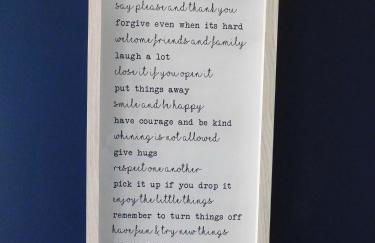 say please and thank you
forgive even when its hard
welcome friends and family
laugh a lot
close it if you open it
put things away
smile and be happy
have courage and be kind
whining is not allowed
give hugs
respect one another
pick it up if you drop it
enjoy the little things
remember to turn things off
have fun & try new things